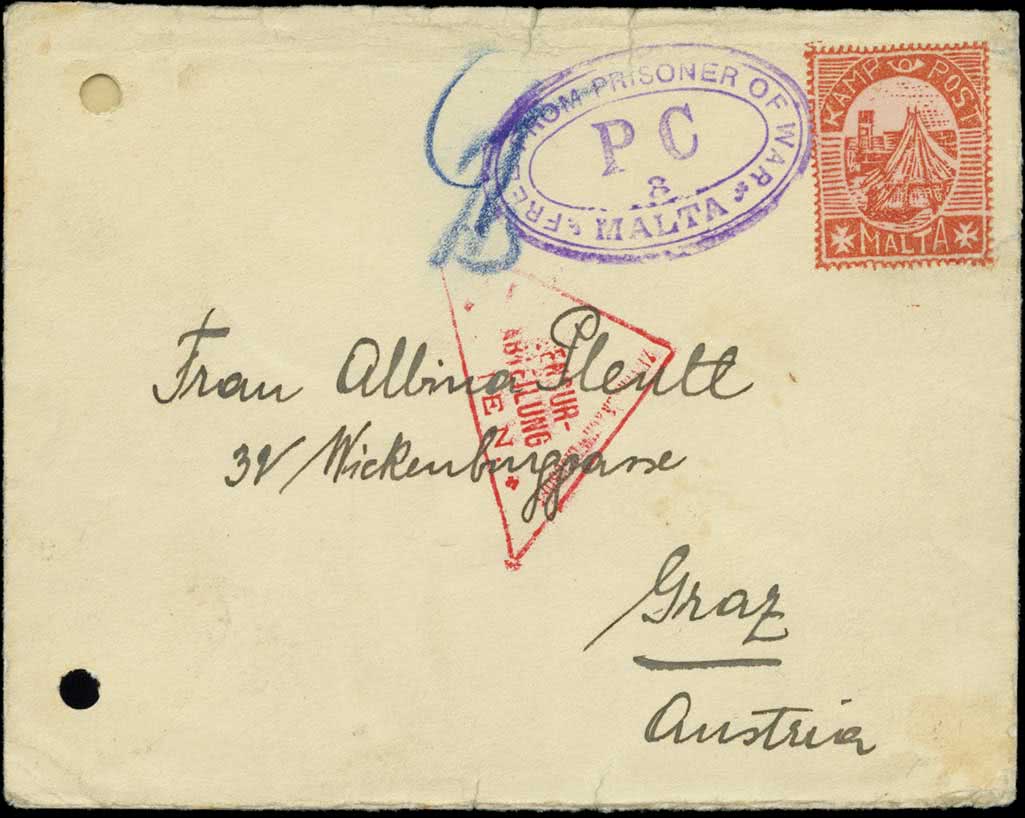 FREE FROM PRISONER OF WAR
P C
8
MALTA
KAMP POST
MALTA
ZENSUR-
ABTEILUNG
WIEN
Frau Albina
Wickenburggasse
Graz
Austria